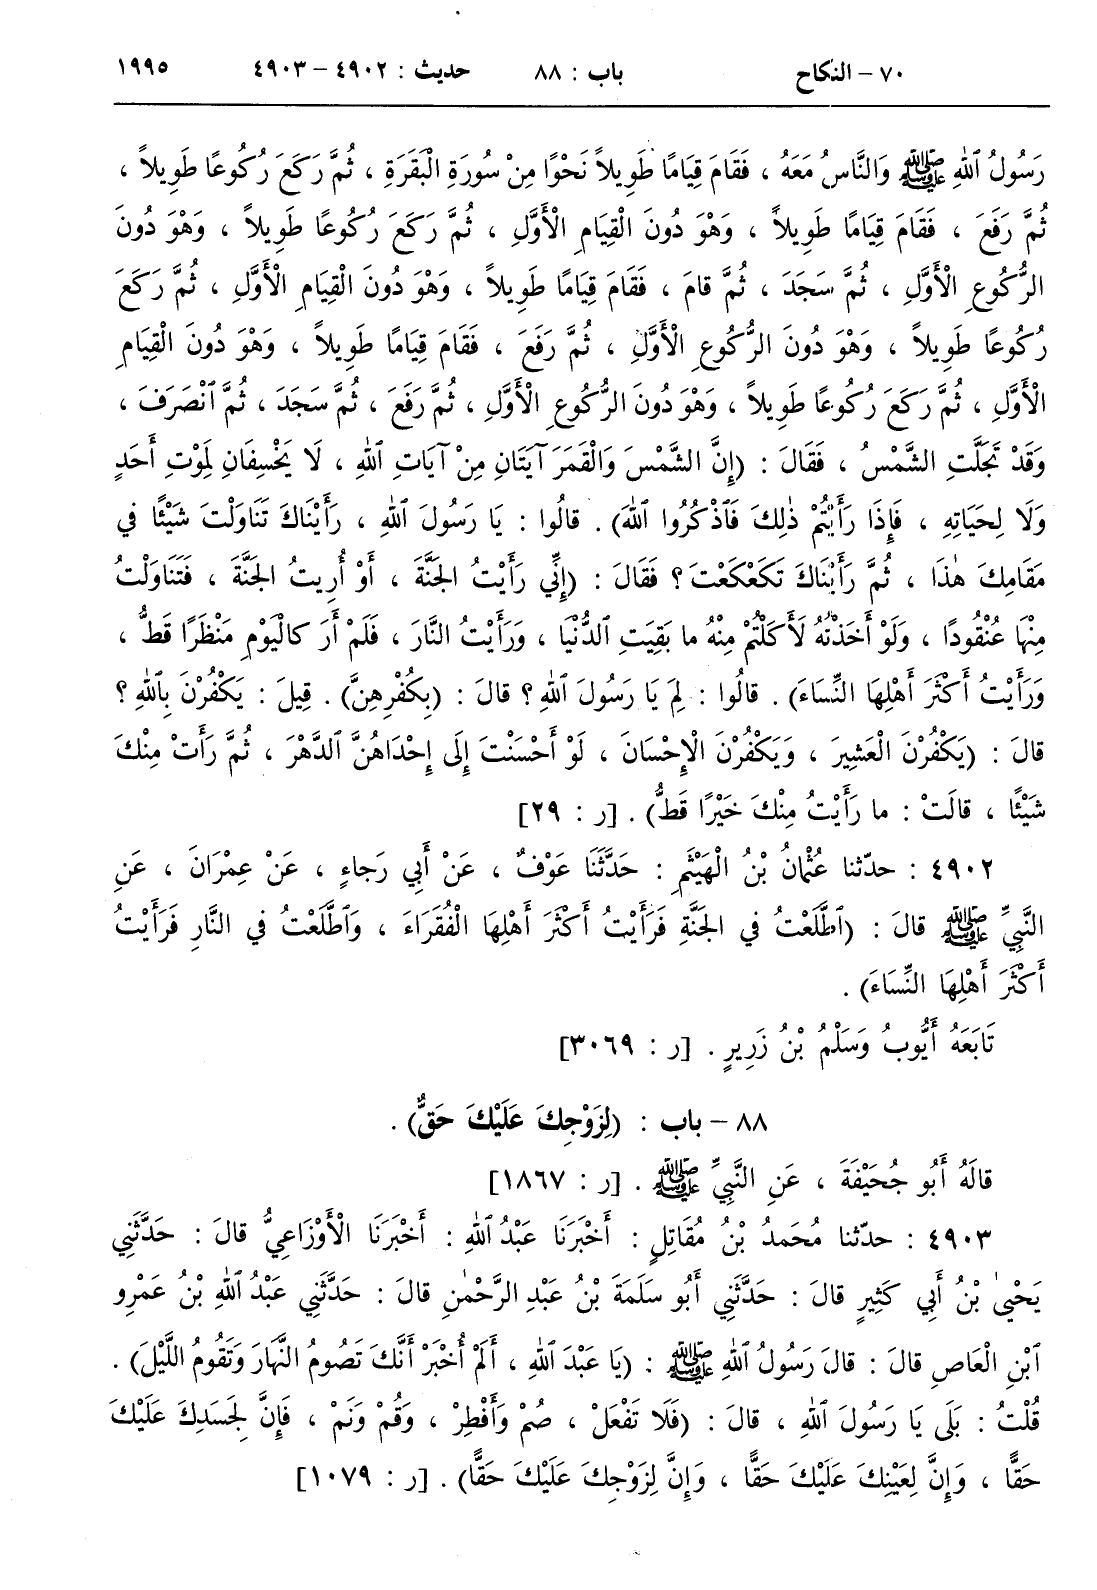 ٧٠ – النكاح باب : ٨٨ حديث : ٤٩٠٢ – ٤٩٠٣ ١٩٩٥
رَسُولُ ٱللهِ ﷺ وَالنَّاسُ مَعَهُ ، فَقَامَ قِيَامًا طَوِيلاً نَحْوًا مِنْ سُورَةِ الْبَقَرَةِ ، ثُمَّ رَكَعَ رُكُوعًا طَوِيلاً ،
ثُمَّ رَفَعَ ، فَقَامَ قِيَامًا طَوِيلاً ، وَهْوَ دُونَ الْقِيَامِ الْأَوَّلِ ، ثُمَّ رَكَعَ رُكُوعًا طَوِيلاً ، وَهْوَ دُونَ
الرُّكُوعِ الْأَوَّلِ ، ثُمَّ سَجَدَ ، ثُمَّ قامَ ، فَقَامَ قِيَامًا طَوِيلاً ، وَهْوَ دُونَ الْقِيَامِ الْأَوَّلِ ، ثُمَّ رَكَعَ
رُكُوعًا طَوِيلاً ، وَهْوَ دُونَ الرُّكُوعِ الْأَوَّلِ ، ثُمَّ رَفَعَ ، فَقَامَ قِيَامًا طَوِيلاً ، وَهْوَ دُونَ الْقِيَامِ
الْأَوَّلِ ، ثُمَّ رَكَعَ رُكُوعًا طَوِيلاً ، وَهْوَ دُونَ الرُّكُوعِ الْأَوَّلِ ، ثُمَّ رَفَعَ ، ثُمَّ سَجَدَ ، ثُمَّ ٱنْصَرَفَ ،
وَقَدْ تَجَلَّتِ الشَّمْسُ ، فَقَالَ : (إِنَّ الشَّمْسَ وَالْقَمَرَ آيَتَانِ مِنْ آيَاتِ ٱللهِ ، لَا يَخْسِفَانِ لِمَوْتِ أَحَدٍ
وَلَا لِحَيَاتِهِ ، فَإِذَا رَأَيْتُمْ ذٰلِكَ فَٱذْكُرُوا ٱللهَ) . قالُوا : يَا رَسُولَ ٱللهِ ، رَأَيْنَاكَ تَنَاوَلْتَ شَيْئًا في
مَقَامِكَ هٰذَا ، ثُمَّ رَأَيْنَاكَ تَكَعْكَعْتَ ؟ فَقَالَ : (إِنِّي رَأَيْتُ الجَنَّةَ ، أَوْ أُرِيتُ الجَنَّةَ ، فَتَنَاوَلْتُ
مِنْهَا عُنْقُودًا ، وَلَوْ أَخَذْتُهُ لَأَكَلْتُمْ مِنْهُ ما بَقِيَتِ ٱلدُّنْيَا ، وَرَأَيْتُ النَّارَ ، فَلَمْ أَرَ كالْيَوْمِ مَنْظَرًا قَطُّ ،
وَرَأَيْتُ أَكْثَرَ أَهْلِهَا النِّسَاءَ) . قالُوا : لِمَ يَا رَسُولَ ٱللهِ ؟ قالَ : (بِكُفْرِهِنَّ) . قِيلَ : يَكْفُرْنَ بِٱللهِ ؟
قالَ : (يَكْفُرْنَ الْعَشِيرَ ، وَيَكْفُرْنَ الْإِحْسَانَ ، لَوْ أَحْسَنْتَ إِلَى إِحْدَاهُنَّ ٱلدَّهْرَ ، ثُمَّ رَأَتْ مِنْكَ
شَيْئًا ، قالَتْ : ما رَأَيْتُ مِنْكَ خَيْرًا قَطُّ) . [ر : ٢٩]
٤٩٠٢ : حدّثنا عُثْمانُ بْنُ الْهَيْثَمِ : حَدَّثَنَا عَوْفٌ ، عَنْ أَبِي رَجاءٍ ، عَنْ عِمْرَانَ ، عَنِ
النَّبِيِّ ﷺ قالَ : (ٱطَّلَعْتُ في الجَنَّةِ فَرَأَيْتُ أَكْثَرَ أَهْلِهَا الْفُقَرَاءَ ، وَٱطَّلَعْتُ في النَّارِ فَرَأَيْتُ
أَكْثَرَ أَهْلِهَا النِّسَاءَ) .
تَابَعَهُ أَيُّوبُ وَسَلْمُ بْنُ زَرِيرٍ . [ر : ٣٠٦٩]
٨٨ – باب : (لِزَوْجِكَ عَلَيْكَ حَقٌّ) .
قالَهُ أَبُو جُحَيْفَةَ ، عَنِ النَّبِيِّ ﷺ . [ر : ١٨٦٧]
٤٩٠٣ : حدّثنا مُحَمدُ بْنُ مُقَاتِلٍ : أَخْبَرَنَا عَبْدُ ٱللهِ : أَخْبَرَنَا الْأَوْزَاعِيُّ قالَ : حَدَّثَنِي
يَحْيَىٰ بْنُ أَبِي كَثِيرٍ قالَ : حَدَّثَنِي أَبُو سَلَمَةَ بْنُ عَبْدِ الرَّحْمٰنِ قالَ : حَدَّثَنِي عَبْدُ ٱللهِ بْنُ عَمْرِو
ٱبْنِ الْعَاصِ قالَ : قالَ رَسُولُ ٱللهِ ﷺ : (يَا عَبْدَ ٱللهِ ، أَلَمْ أُخْبَرْ أَنَّكَ تَصُومُ النَّهَارَ وَتَقُومُ اللَّيْلَ) .
قُلْتُ : بَلَى يَا رَسُولَ ٱللهِ ، قالَ : (فَلَا تَفْعَلْ ، صُمْ وَأَفْطِرْ ، وَقُمْ وَنَمْ ، فَإِنَّ لِجَسَدِكَ عَلَيْكَ
حَقًّا ، وَإِنَّ لِعَيْنِكَ عَلَيْكَ حَقًّا ، وَإِنَّ لِزَوْجِكَ عَلَيْكَ حَقًّا) . [ر : ١٠٧٩]